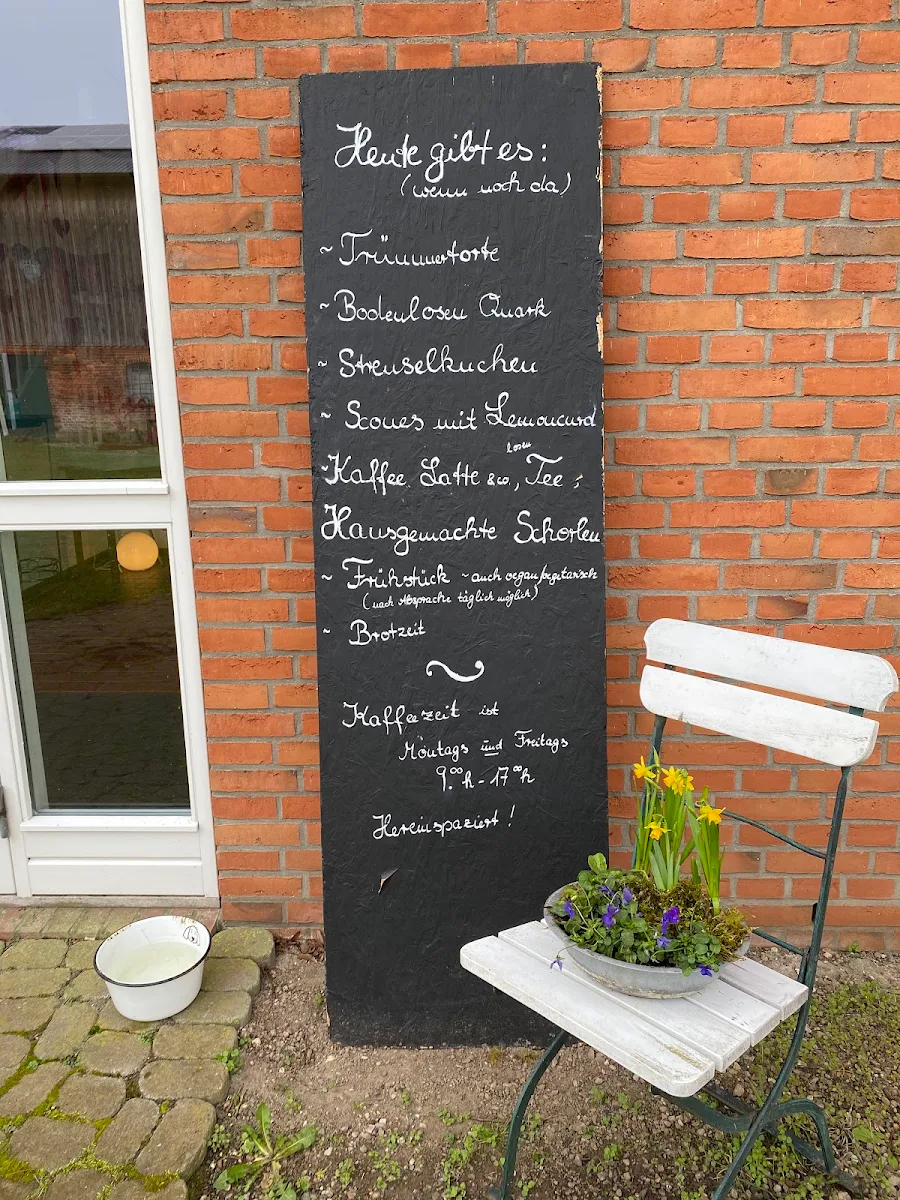 Heute gibt es:
(wenn noch da)
~ Trümmertorte
~ Bodenlosen Quark
~ Streuselkuchen
~ Scones mit Lemoncurd
losen
~ Kaffee, Latte &co, Tee,
Hausgemachte Schorlen
~ Frühstück ~ auch vegan/vegetarisch
(nach Absprache täglich möglich)
~ Brotzeit
Kaffeezeit ist
Montags und Freitags
9.⁰⁰h - 17⁰⁰h
Hereinspaziert!